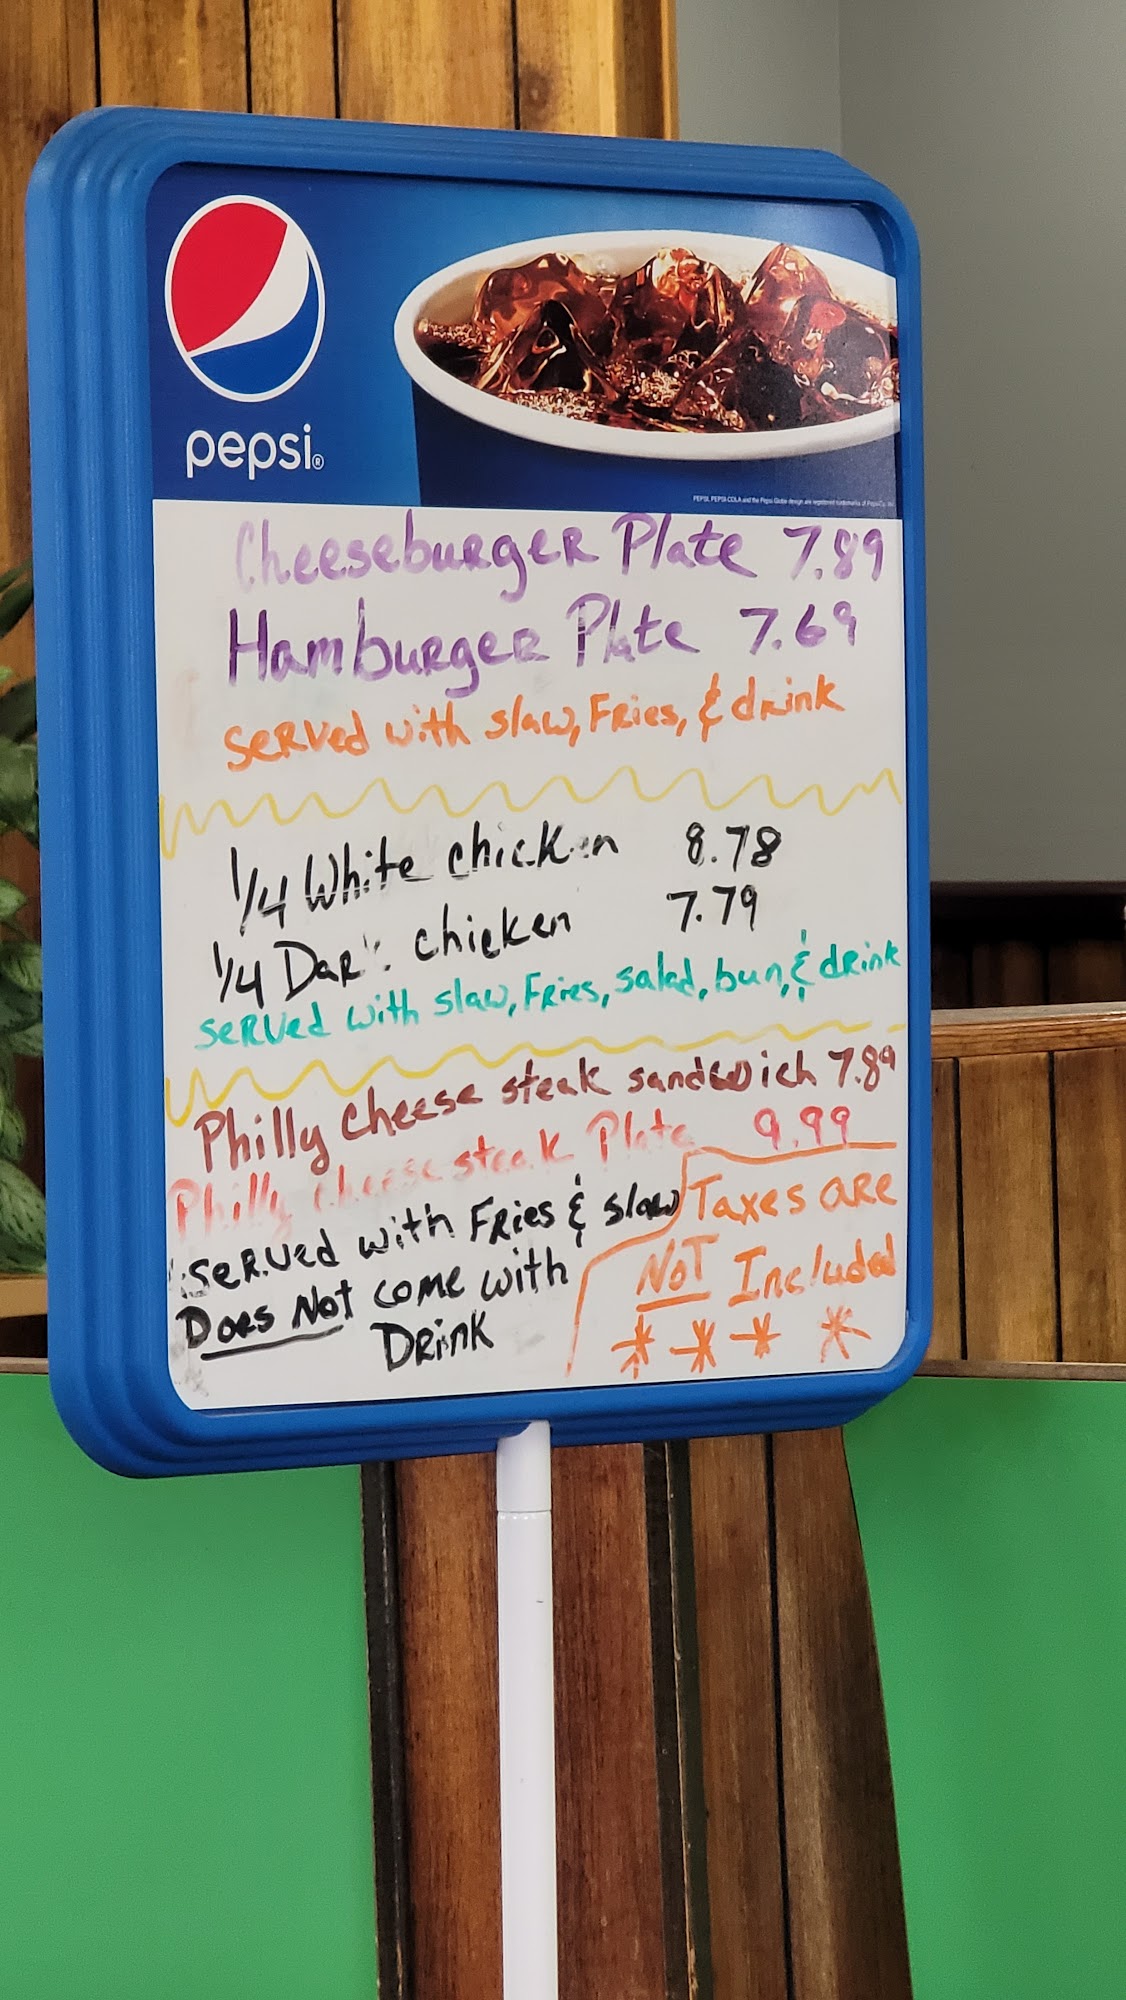 pepsi®
PEPSI, PEPSI-COLA and the Pepsi Globe design are registered trademarks of PepsiCo, Inc.
Cheeseburger Plate 7.89
Hamburger Plate 7.69
Served with slaw, Fries, & drink
1/4 White chicken 8.78
1/4 Dark chicken 7.79
Served with slaw, Fries, salad, bun, & drink
Philly Cheese steak sandwich 7.89
Philly cheese steak Plate 9.99
Served with Fries & slaw
Does Not come with
Drink
Taxes are
NOT Included
* * * *